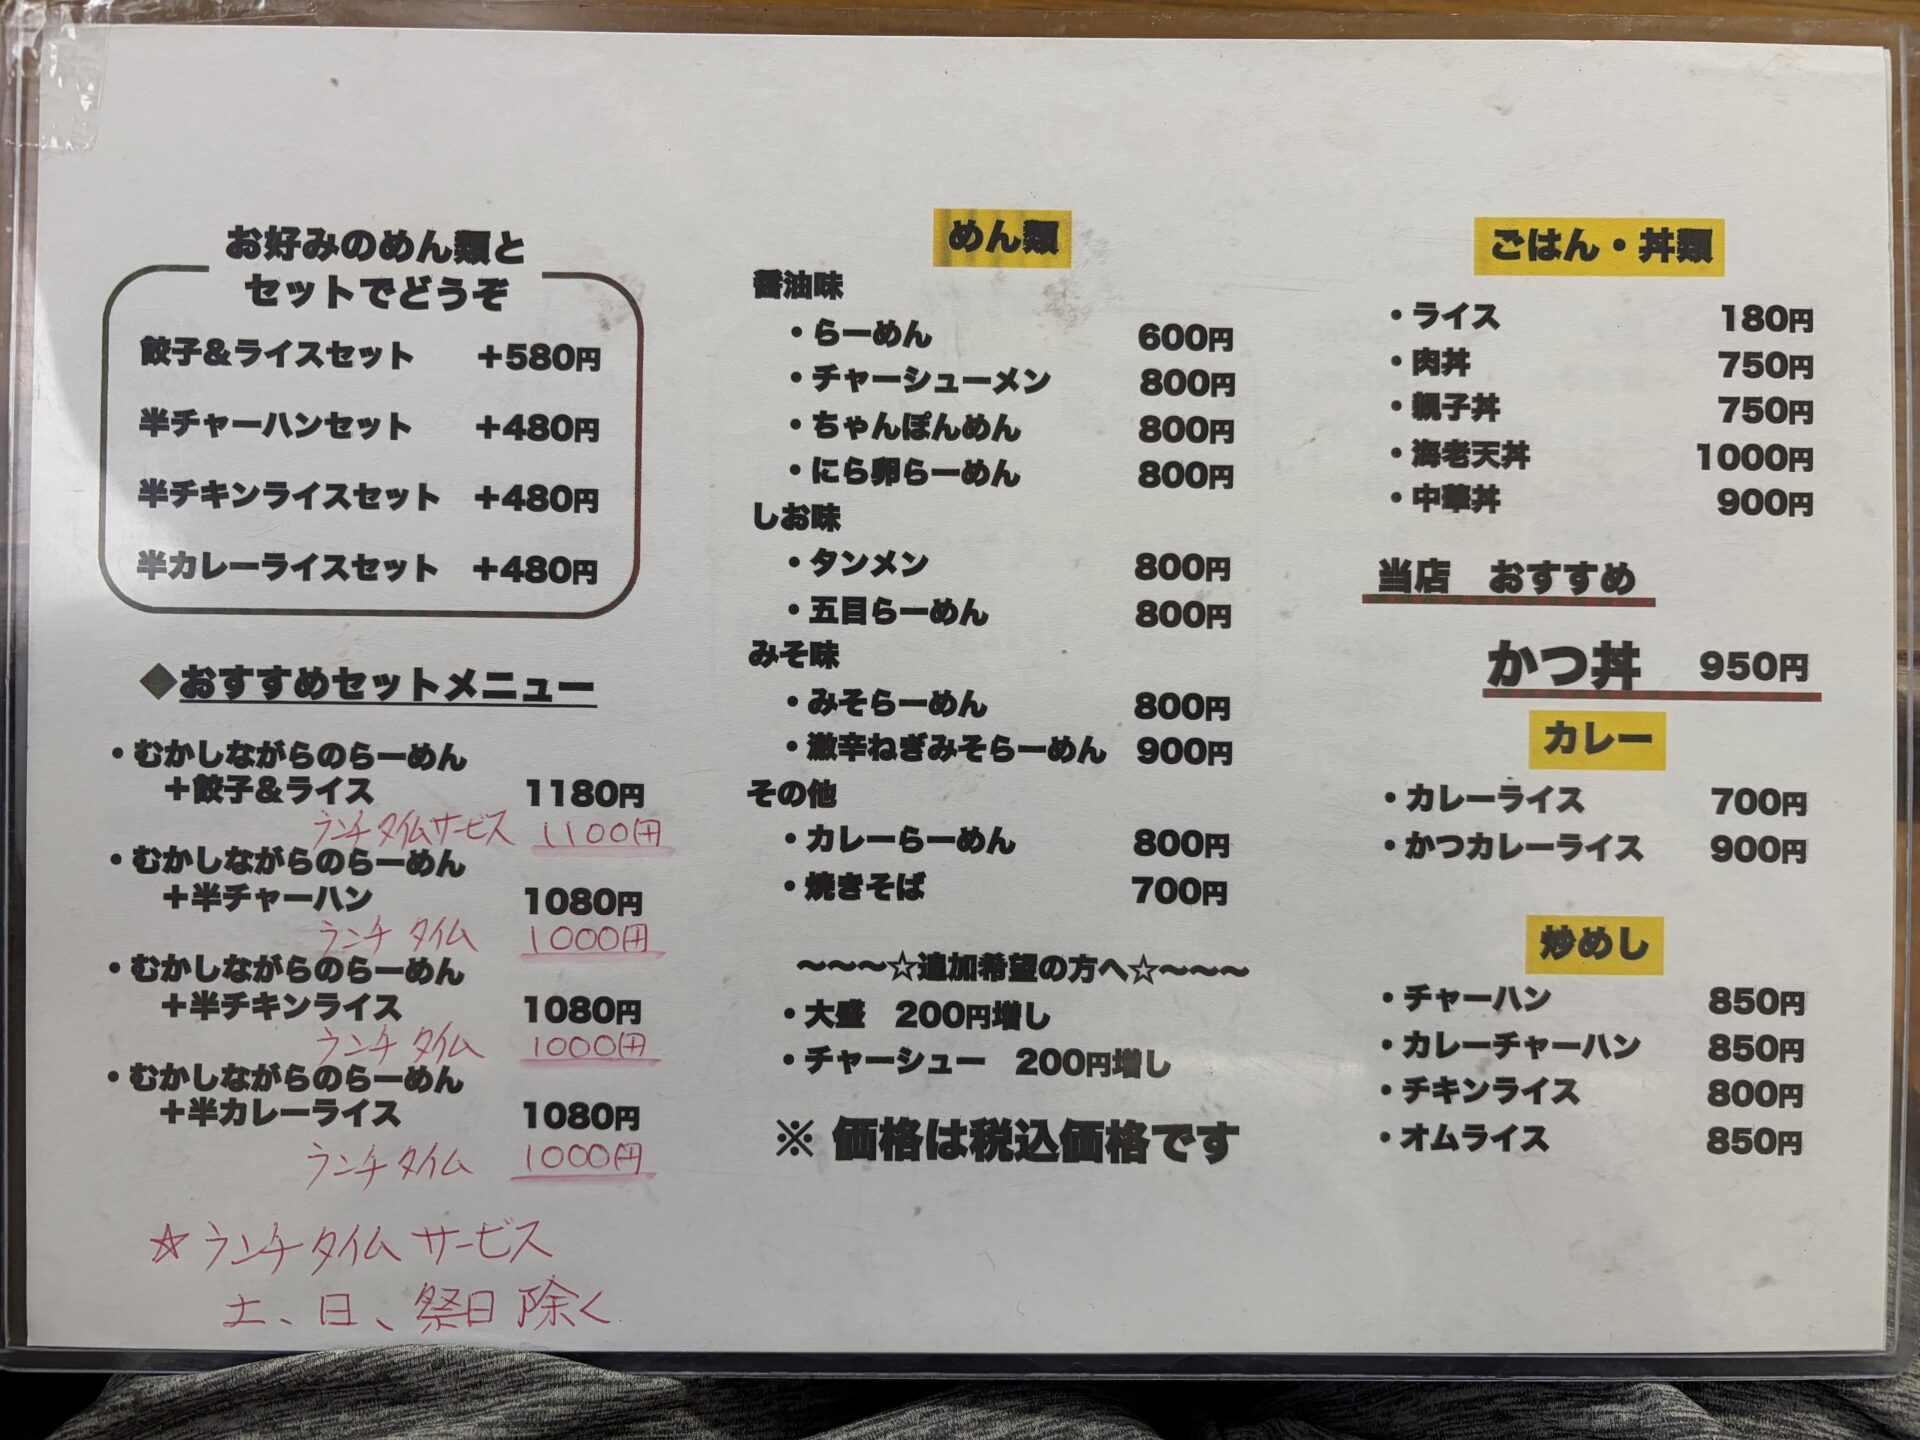 お好みのめん類と
セットでどうぞ
餃子&ライスセット +580円
半チャーハンセット +480円
半チキンライスセット +480円
半カレーライスセット +480円
◆おすすめセットメニュー
・むかしながらのらーめん
+餃子&ライス 1180円
ランチタイムサービス 1100円
・むかしながらのらーめん
+半チャーハン 1080円
ランチタイム 1000円
・むかしながらのらーめん
+半チキンライス 1080円
ランチタイム 1000円
・むかしながらのらーめん
+半カレーライス 1080円
ランチタイム 1000円
☆ランチタイムサービス
土、日、祭日除く
めん類
醤油味
・らーめん 600円
・チャーシューメン 800円
・ちゃんぽんめん 800円
・にら卵らーめん 800円
しお味
・タンメン 800円
・五目らーめん 800円
みそ味
・みそらーめん 800円
・激辛ねぎみそらーめん 900円
その他
・カレーらーめん 800円
・焼きそば 700円
〜〜〜☆追加希望の方へ☆〜〜〜
・大盛 200円増し
・チャーシュー 200円増し
※ 価格は税込価格です
ごはん・丼類
・ライス 180円
・肉丼 750円
・親子丼 750円
・海老天丼 1000円
・中華丼 900円
当店 おすすめ
かつ丼 950円
カレー
・カレーライス 700円
・かつカレーライス 900円
炒めし
・チャーハン 850円
・カレーチャーハン 850円
・チキンライス 800円
・オムライス 850円